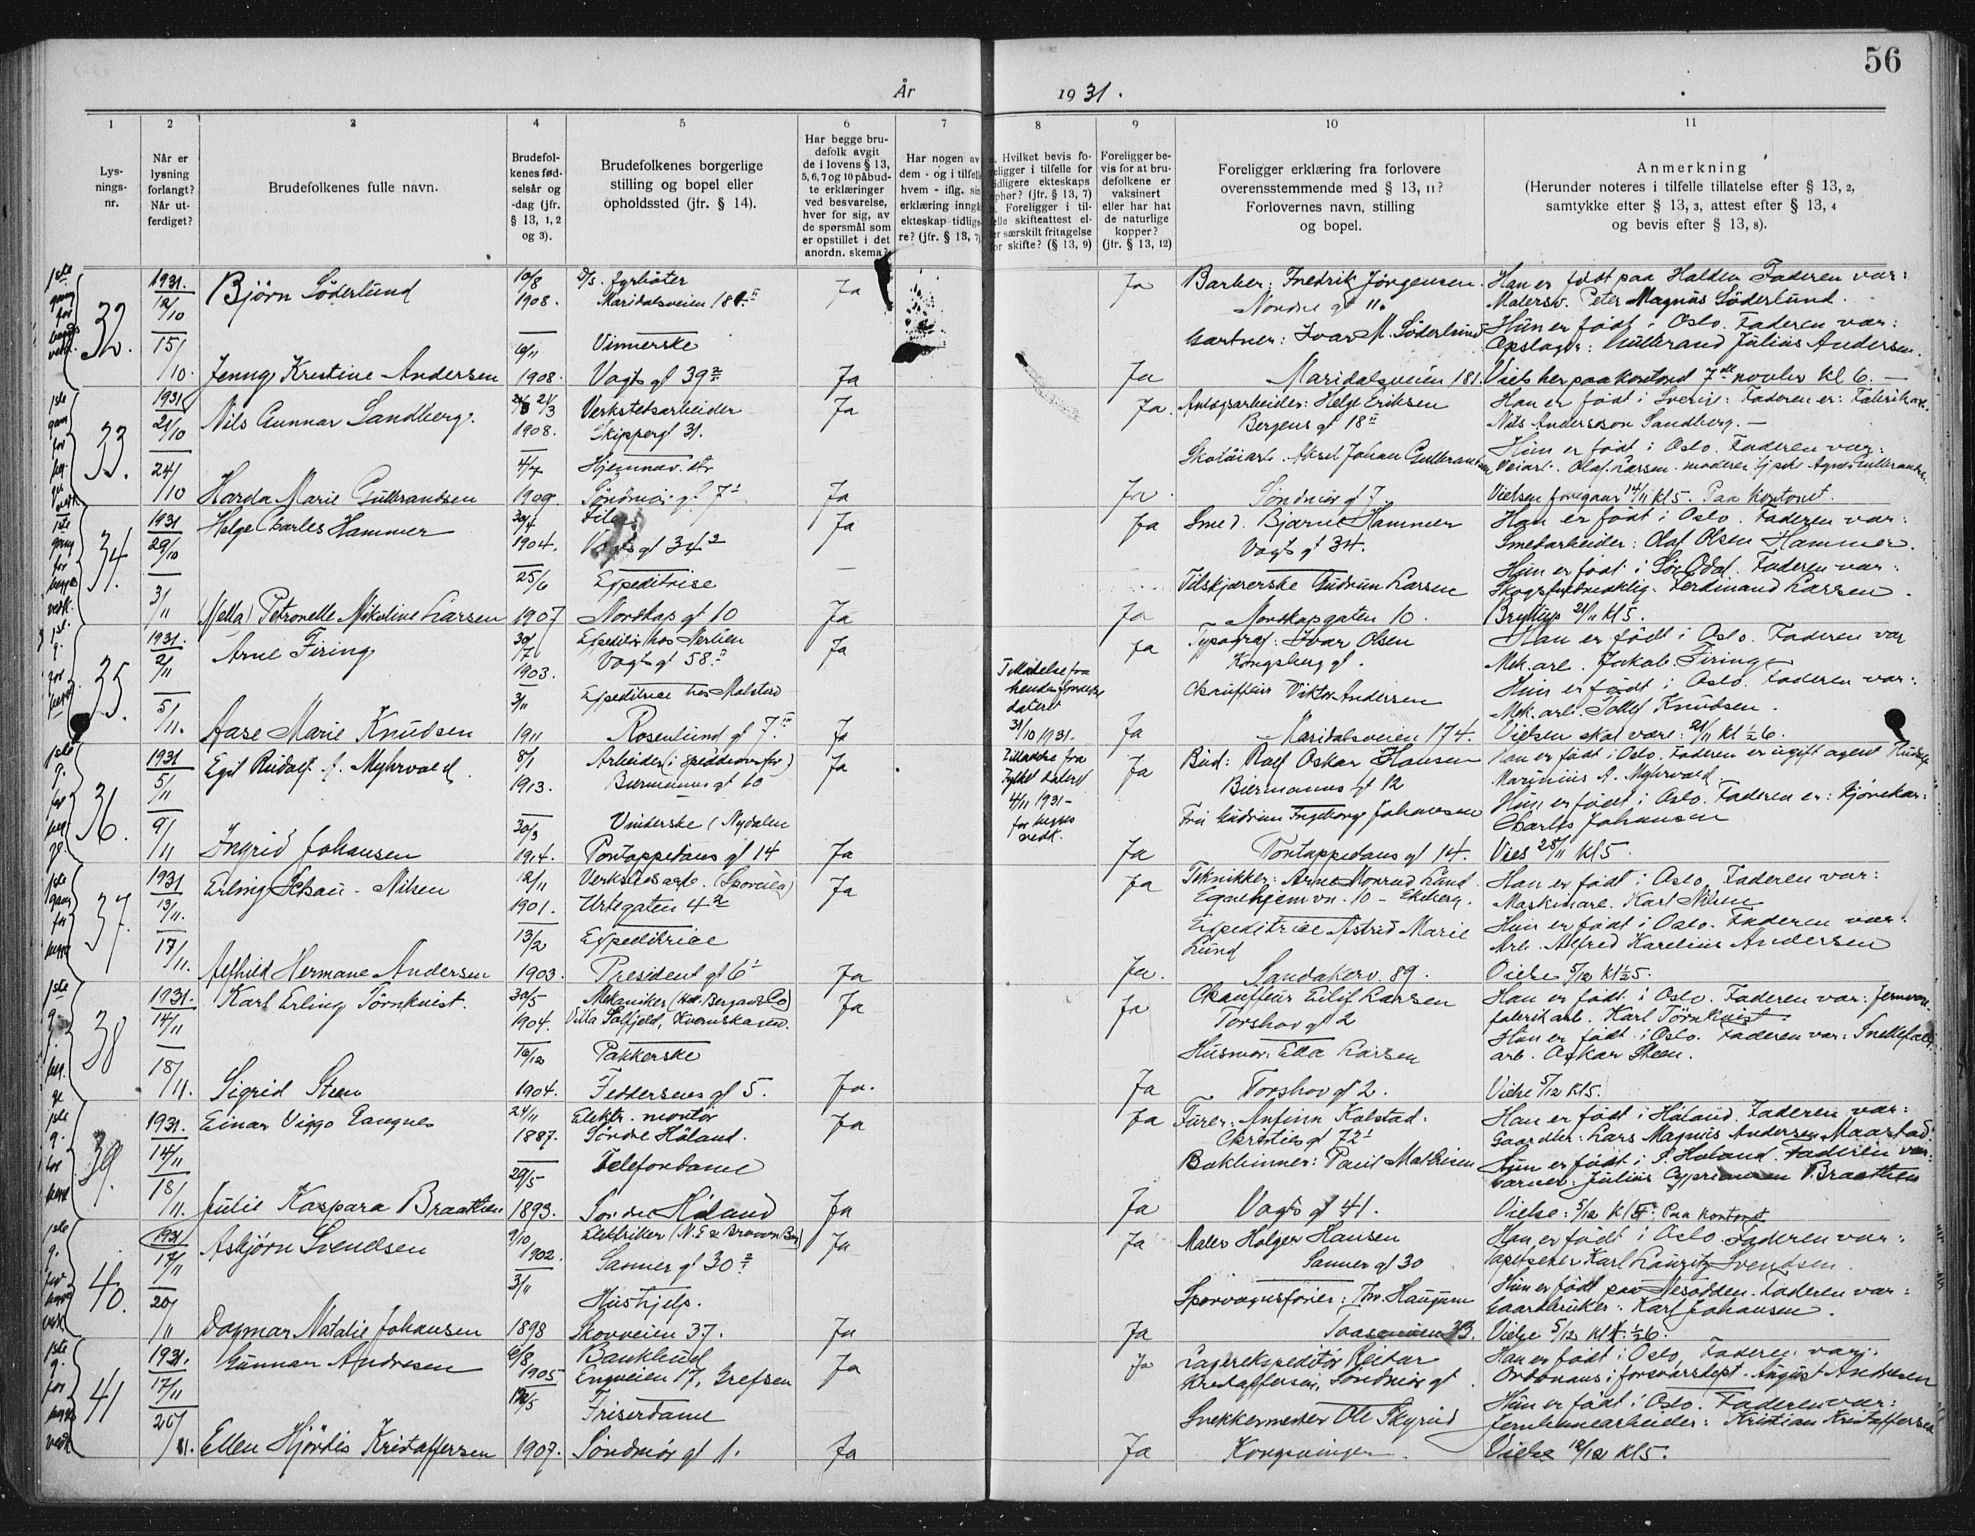 56
År 1931.
1 2 3 4 5 6 7 8 9 10 11
Lys-
nings-
nr.
Når er
lysning
forlangt?
Når ut-
ferdiget?
Brudefolkenes fulle navn.
Brudefol-
kenes fød-
selsår og
-dag (jfr.
§ 13, 1, 2
og 3).
Brudefolkenes borgerlige
stilling og bopel eller
opholdssted (jfr. § 14).
Har begge bru-
defolk avgit
de i lovens § 13,
5, 6, 7 og 10 påbud-
te erklæringer
ved besvarelse,
hver for sig, av
de spørsmål som
er opstillet i det
anordn. skema?
Har nogen av
dem - og i tilfelle
hvem - iflg. sin
erklæring inngå
ekteskap tidlige
re? (jfr. § 13, 7)
a. Hvilket bevis fo-
religger i tilfelle for
tidligere ekteskaps
ophør? (jfr. § 13, 7)
b. Foreligger i til-
felle skifteattest el-
ler særskilt fritagelse
for skifte? (§ 13, 9)
Foreligger be-
vis for at bru-
defolkene er
vaksinert
eller har hat
de naturlige
kopper?
(jfr. § 13, 12)
Foreligger erklæring fra forlovere
overensstemmende med § 13, 11?
Forlovernes navn, stilling
og bopel.
Anmerkning
(Herunder noteres i tilfelle tillatelse efter § 13, 2,
samtykke efter § 13, 3, attest efter § 13, 4
og bevis efter § 13, 8).
32.
1931. 12/10 15/10.
Bjørn Söderlund
10/8 1908. D/s. fyrbøter
Maridalsveien 181 II
Ja Ja
Barber: Fredrik Jörgensen
Nordre gt 11.
Han er født paa Halden Faderen var:
Malersv. Peter Magnus Söderlund.
Jenny Kristine Andersen
6/11 1908. Vinnerske
Vogts gt 39 2
Ja Ja
Gartner: Ivar M. Söderlund
Maridalsveien 181.
Hun er født i Oslo. Faderen var:
Opslager: Gulbrand Julius Andersen.
Viels her paa kontoret 7de novbr kl 6. —
33.
1931 21/10 24/10
Nils Gunnar Sandberg.
21/3 1908. Verkstedsarbeider
Skippergt 31.
Ja Ja.
Anlægsarbeider: Helge Eriksen
Bergens gt 18 II
Han er født i Sverig: Faderen er: Fabrikarb.
Nils Andersson Sandberg. —
Harda Marie Gulbrandsen
4/7 1909. Hjemmev. dtr
Søndmør gt 7 I
Ja Ja.
Skotöiarb. Aksel Johan Gulbrandsen
Søndmør gt 7
Hun er født i Oslo. Faderen var:
Veiarb. Olaf Larsen.
Vielsen foregaar 14/11 kl 5. Paa kontoret.
34.
1931 29/10 3/11
Helge Charles Hammer
30/4 1904. Filer
Vogts gt 34 2
Ja Ja
Smed. Bjarne Hammer
Vogts gt 34.
Han er født i Oslo. Faderen var:
Smedarbeider: Olaf Olsen Hammer.
(Nella) Petronelle Nikoline Larsen
25/6 1907 Expeditrise
Nordkap gt 10
Ja Ja
Tilskjærerske Gudrun Larsen
Nordkapgaten 10.
Hun er født i Sør Odal. Faderen var:
Ferdinand Larsen.
Bryllup 21/11 kl 5.
35.
1931. 2/11 5/11.
Arne Firing
30/7 1903. Expeditør hos Nerlien
Vogts gt 58. II
Ja Ja
Typograf: Ivar Olsen
Kongsberg gt.
Han er født i Oslo. Faderen var
Mek. arb. Jakob Firing
Aase Marie Knudsen
3/11 1911 Expeditrice hos Malstad
Rosenlund gt 7. III
Ja
Tilladelse fra
dateret
31/10 1931.
Ja
Chauffeur Viktor Andersen
Maridalsveien 174.
Hun er født i Oslo. Faderen var:
Mek. arb. Tollef Knudsen.
Vielsen skal være: 21/11 kl ½6.
36.
1931 5/11 9/11
Egil Rudolf f. Myhrvold
8/1 1913. Arbeider (i speditionsfor)
Biermanns gt 10
Ja
Tilladelse fra
Fylket dateret
4/11 1931 -
for begges
vedk.
Ja
Bud: Rolf Oskar Hansen
Biermanns gt 12
Han er født i Oslo. Faderen er ugift agent Rudolf
Marinius A. Myhrvold
Ingrid Johansen
30/3 1914. Vinderske (Nydalen
Pontoppidans gt 14
Ja Ja
Fru Gudrun Ingeborg Johansen
Pontoppidans gt 14.
Hun er født i Oslo. Faderen er: Kjørekar:
Charles Johansen
Vies 28/11 kl 5.
37.
1931 13/11. 17/11.
Erling Schau - Nilsen
12/11 1901. Verkstedsarb. (Sporveia)
Urtegaten 4 2
Ja Ja
Teknikker: Arne Konrad Lund
Egnehjemvn. 10 - Ekeberg.
Han er født i Oslo. Faderen var:
Maskinarb. Karl Nilsen
Alfhild Hermane Andersen
13/2 1903. Expeditrice
President gt 6 I
Ja Ja.
Expeditrice Astrid Marie
Lund
Sandakerv. 89.
Hun er født i Oslo. Faderen var:
Arb. Alfred Karelius Andersen
Vielse 5/12 kl ½5.
38
1931. 14/11 18/11.
Karl Erling Törnkvist.
30/5 1904. Mekaniker (Hos. Bergans & Co)
Villa Solfjeld, Kværnskaren.
Ja Ja
Chauffeur Eilif Larsen
Torshov gt 2
Han er født i Oslo. Faderen var: Jernvare-
fabrikarb. Karl Törnkvist
Sigrid Steen
16/12 1904. Pakkerske
Feddersens gt 5.
Ja. Ja
Husmor: Ella Larsen
Torshov gt 2.
Hun er født i Oslo. Faderen var: Snellefab.
arb. Oskar Steen.
Vielse 5/12 kl 5.
39.
1931. 14/11 18/11.
Einar Viggo Langnes
24/11 1887. Elektr. montør
Søndre Høland.
Ja Ja
Furer: Anfinn Kalstad.
Christies gt 72 I
Han er født i Høland. Faderen var:
Gaardbr: Lars Magnus Andersen Maarstad.
Julie Kaspara Braathen
29/5 1893. Telefondame
Søndre Høland
Ja Ja
Bokbinner: Paul Mathisen
Vogts gt 41.
Hun er født i S. Høland. Faderen var:
Garver. Julius Cypriansen Braathen
Vielse: 5/12 kl 5. Paa kontoret
40.
1931 17/11 20/11
Asbjørn Svendsen
9/10 1902. Elektriker (N. E & Brown Bov)
Sanner gt 30 2
Ja Ja
Maler Holger Hansen
Sanner gt 30
Han er født i Oslo Faderen var:
Tapetserer Karl Lauritz Svendsen.
Dagmar Natalie Johansen
3/11 1898 Hushjelp.
Skovveien 37.
Ja Ja
Sporvognsfører: Thv. Haugum
Taasenveien 33.
Hun er født paa Nesodden. Faderen var:
Gaardbruker: Karl Johansen.
Vielse 5/12 kl ½6.
41
1931. 17/11 20/11.
Gunnar Andresen
6/8 1905 Bankbud
Engveien 17, Grefsen
Ja Ja
Lagerekspeditør Reidar
Kristoffersen, Søndmør gt
Han er født i Oslo, Faderen var:
Ordonans i forsvarsdept. August Andresen
Ellen Hjørdis Kristoffersen
12/5 1907. Friserdame
Søndmør gt 1.
Ja Ja
Snekkermester Ole Skyrud
Kongsvinger.
Hun er født i Oslo. Faderen var:
Jernbanearbeider: Kristian Kristoffersen
Vielse 12/12 kl 5.